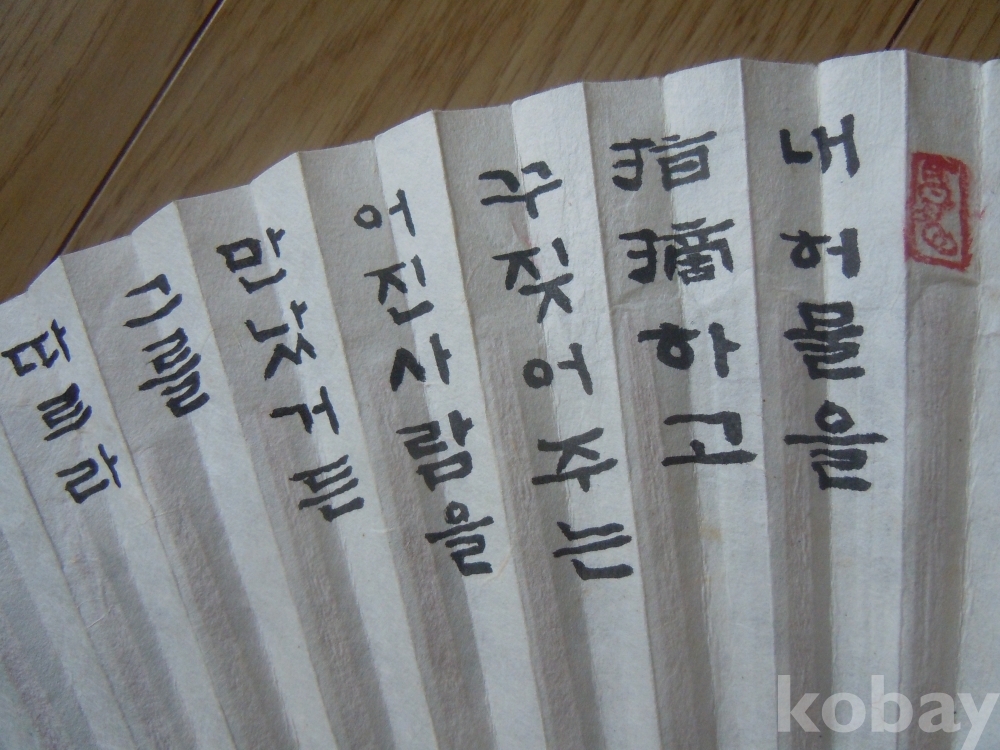 내허물을
指摘하고
구짖어주는
어진사람을
만났거든
그를
따르라
kobay